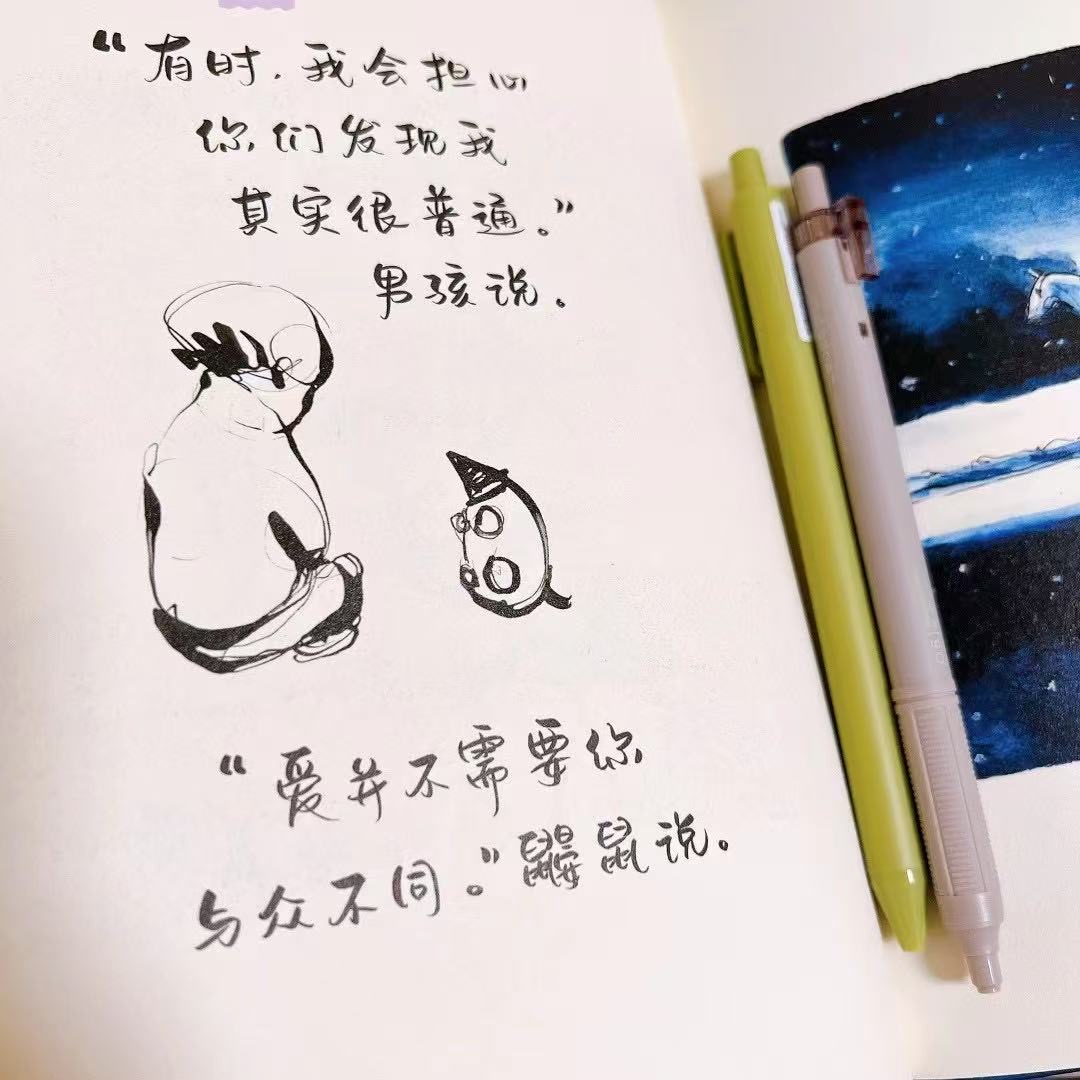 “有时，我会担心
你们发现我
其实很普通。”
男孩说。
“爱并不需要你
与众不同。”鼹鼠说。